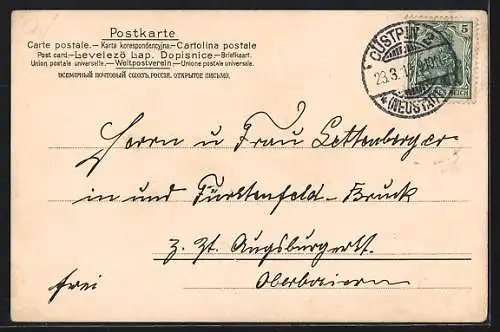 Postkarte
Carte postale. — Karta korespondencyjna — Cartolina postale
Post card — Levelező Lap. Dopisnice — Briefkaart.
Union postale universelle. — Weltpostverein — Unione postale universale.
ВСЕМІРНЫЙ ПОЧТОВЫЙ СОЮЗЪ. РОССІЯ. ОТКРЫТОЕ ПИСЬМО.
CÜSTRIN 2
23.3.
(NEUSTADT)
5
REICH
Herrn u Frau Lettenberger
in und Fürstenfeld-Bruck
z. Zt. Augsburgerst.
Oberbaiern
frei